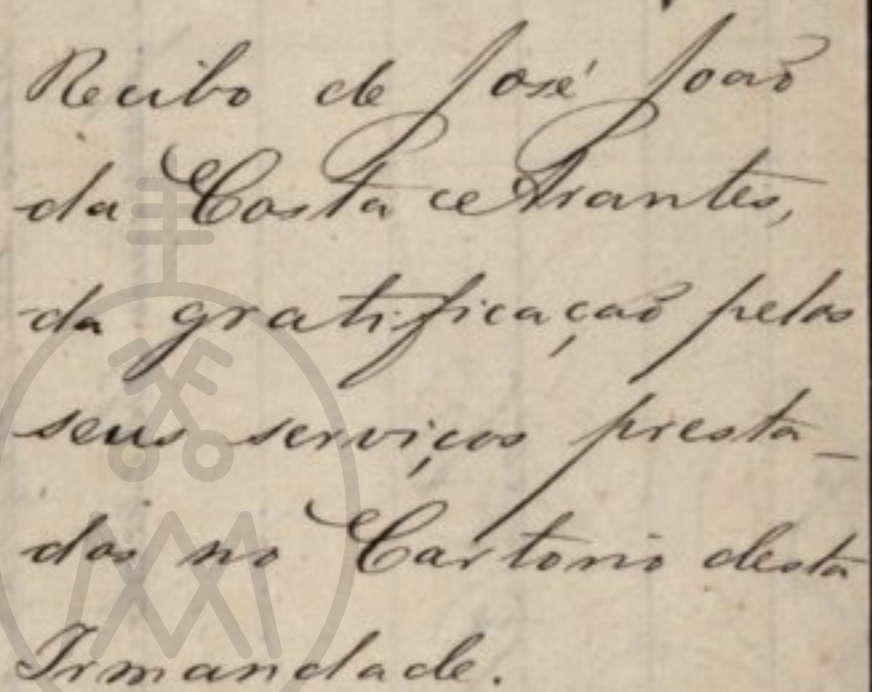 Recibo de José João
da Costa e Arantes,
da gratificação pelos
seus serviços presta-
dos no Cartorio desta
Irmandade.